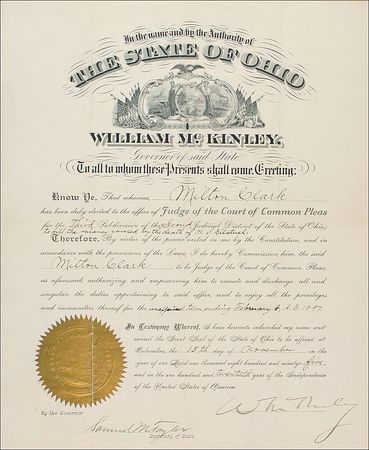 In the name and by the Authority of
THE STATE OF OHIO
WILLIAM McKINLEY,
Governor of said State
To all to whom these Presents shall come, Greeting:
Know Ye, That whereas, Milton Clark
has been duly elected to the office of Judge of the Court of Common Pleas
for the Third Subdivision of the Second Judicial District of the State of Ohio,
to fill the vacancy caused by the death of
Therefore, By virtue of the power vested in me by the Constitution, and in
accordance with the provisions of the Laws, I do hereby Commission him, the said
Milton Clark to be Judge of the Court of Common Pleas,
as aforesaid, authorizing and empowering him to execute and discharge, all and
singular, the duties appertaining to said office, and to enjoy all the privileges
and immunities thereof for the unexpired term ending February 6 A.D. 1897
In Testimony Whereof, I have hereunto subscribed my name and
caused the Great Seal of the State of Ohio to be affixed at
Columbus, the 15th day of November in the
year of our Lord one thousand eight hundred and ninety-five,
and in the one hundred and twentieth year of the Independence
of the United States of America.
By the Governor
Wm McKinley
Samuel M. Taylor
Secretary of State